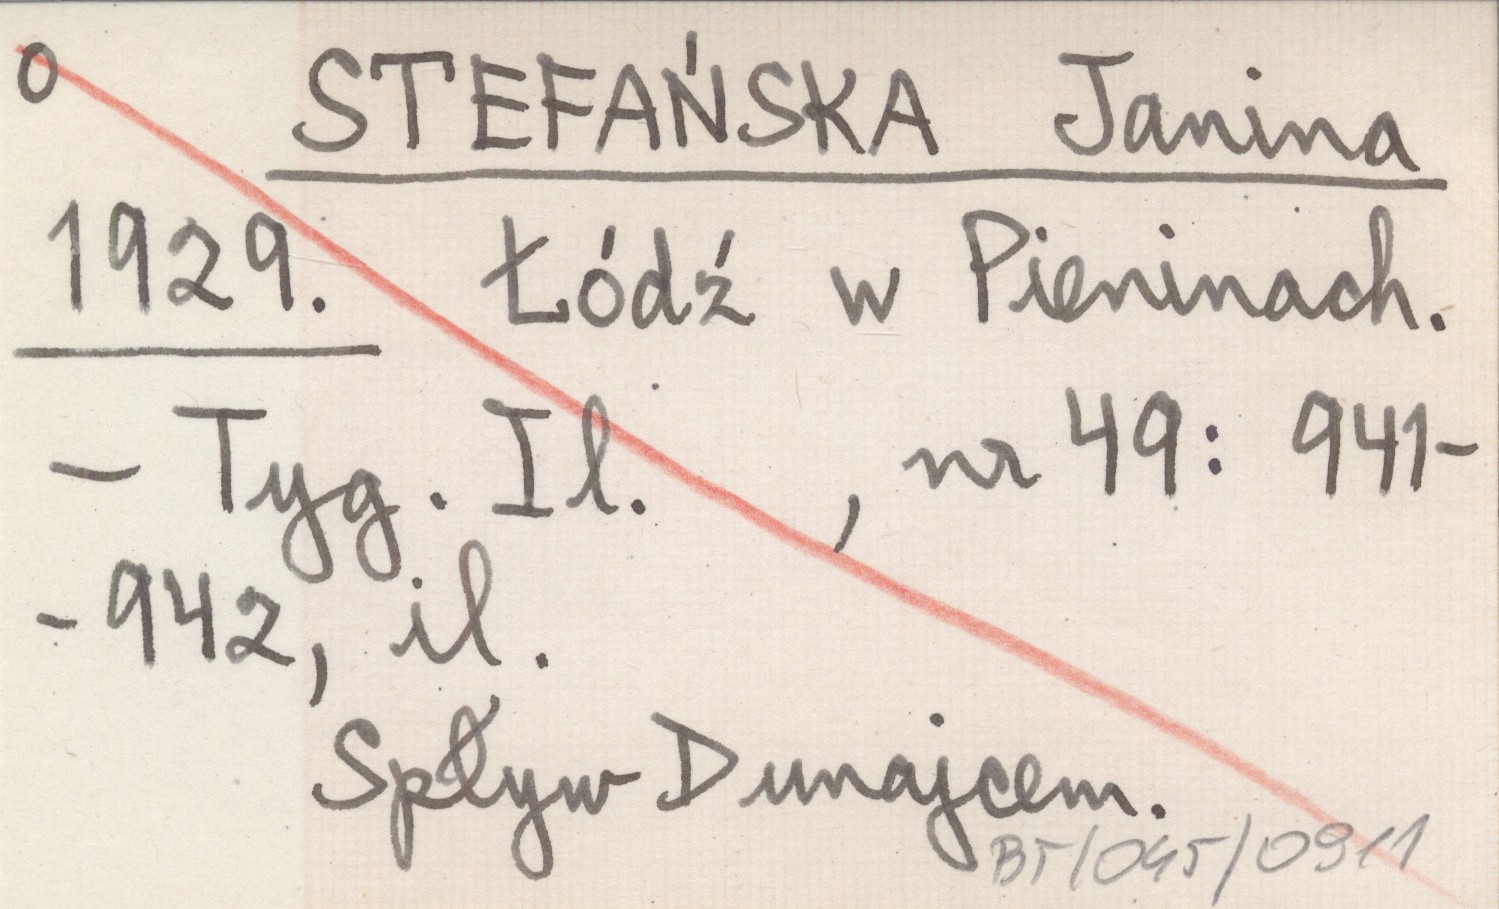 0 STEFAŃSKA Janina
1929. Łódź w Pieninach.
– Tyg. Il. , nr 49: 941-
-942, il.
Spływ Dunajcem.
BT/045/0911